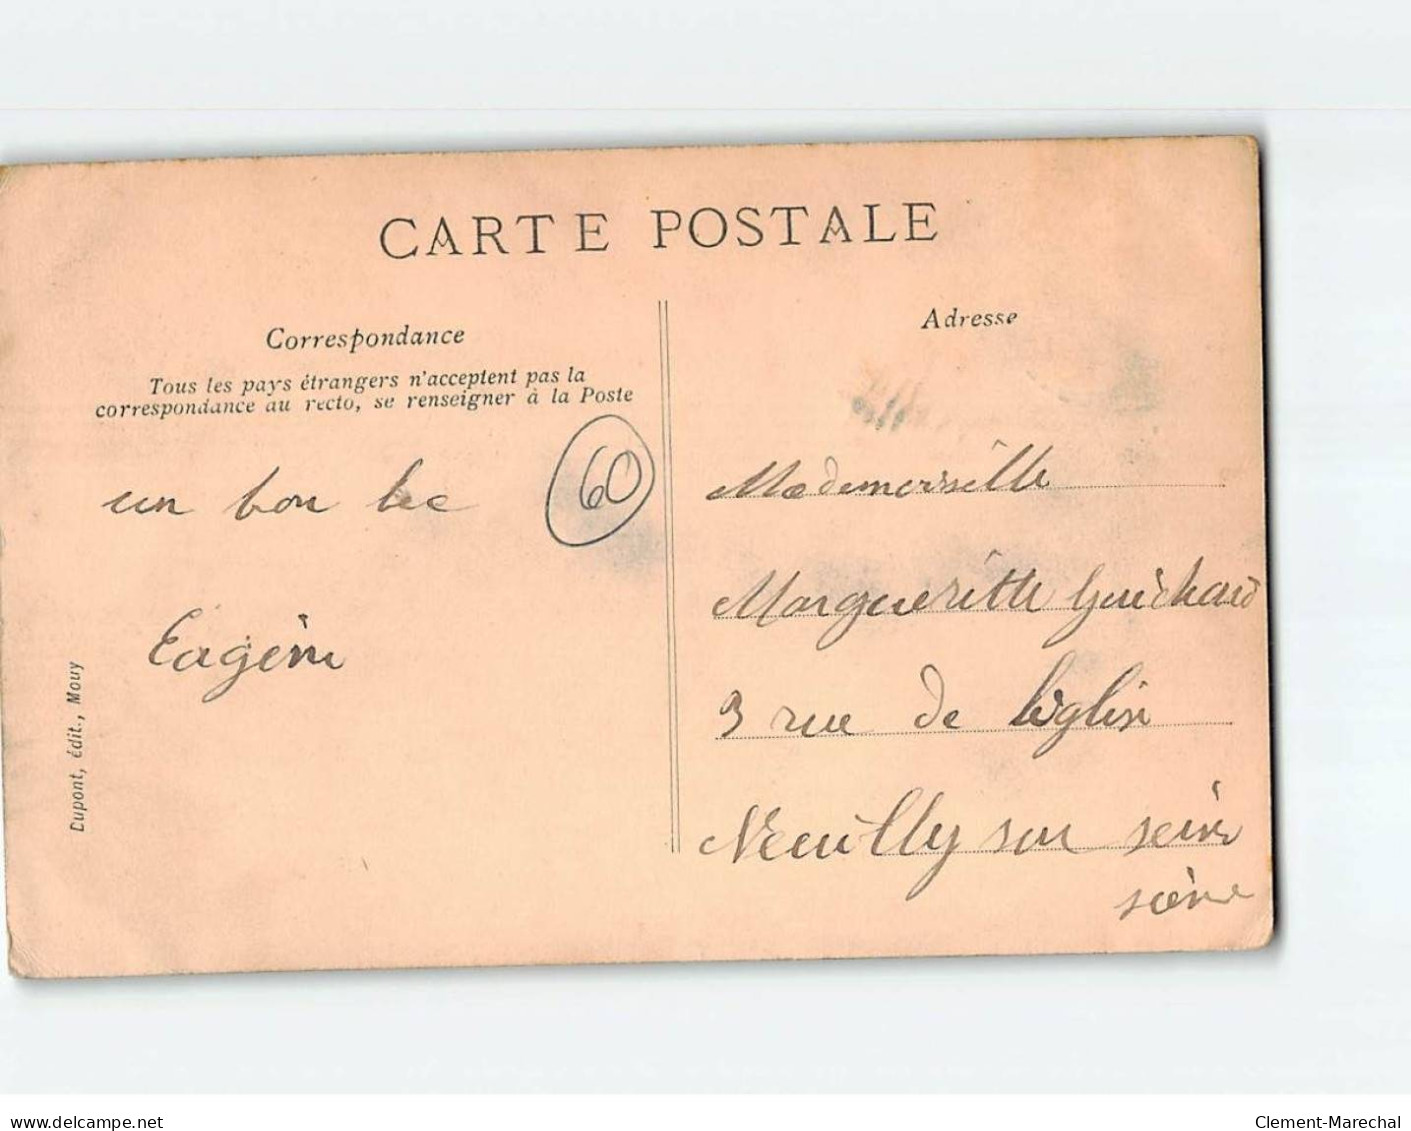 CARTE POSTALE
Correspondance
Tous les pays étrangers n'acceptent pas la
correspondance au recto, se renseigner à la Poste
un bon bec
60
Eugénie
Dupont, édit., Mouy
Adresse
Mademoiselle
Marguerithe Guichard
3 rue de l'église
Neuilly sur seine
seine
www.delcampe.net
Clement-Marechal